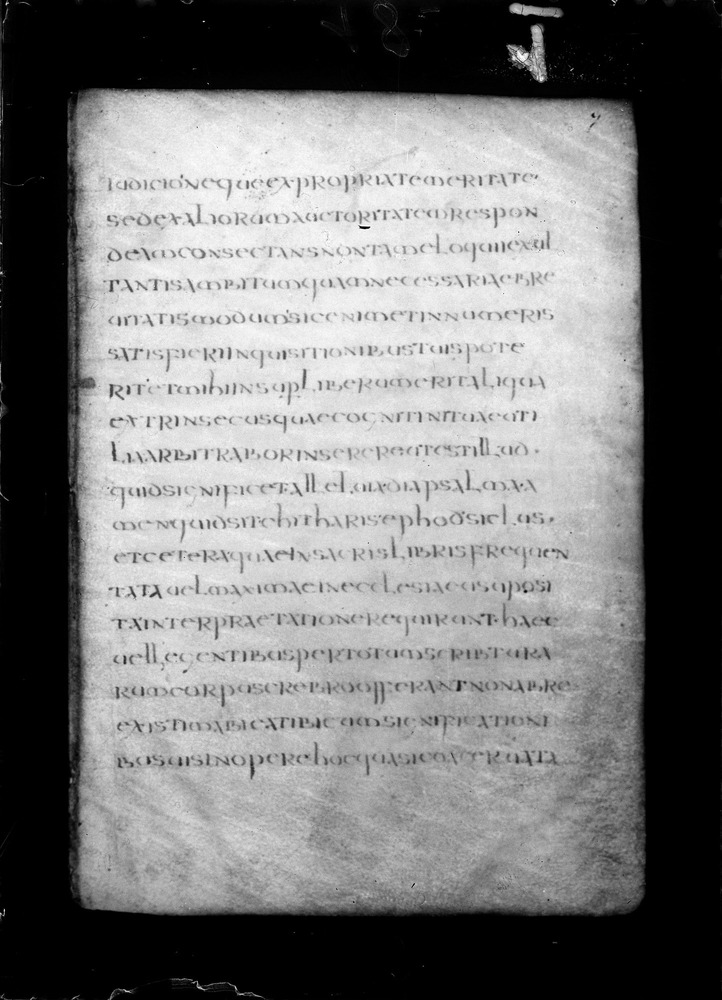 iudicio neque ex propria temeritate
sed ex aliorum auctoritatem respon
deam consectans non tam eloquii exul
tantis ambitum quam necessariae bre
uitatis modum sic enim et innumeris
satisfieri inquisitionibus tuis pote
rit et mihi insup liberum erit aliqua
extrinsecus quae cognitini tuae uti
lia arbitrabor inserere at est illud
quid significet alleluia diapsalma a
men quid sit chitharis ephod siclus
et cetera quae in sacris libris frequen
tata uel maximae in ecclesiae usu posi
ta interpraetatione requirunt haec
uel legentibus per totum scribtura
rum corpus crebro offerant non ab re
existimabi ea tibi cum significationi
bus suis in opere hoc quasi coaceruata